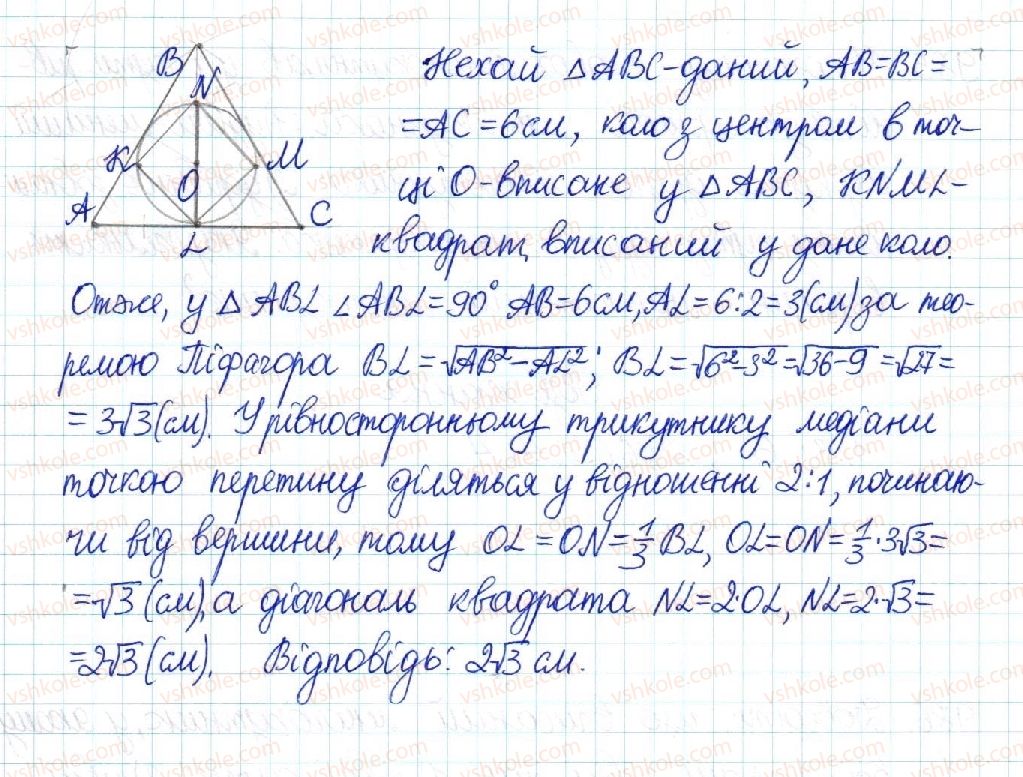 Нехай △ABC-даний, AB=BC=
=AC=6см, коло з центром в точ-
ці O-вписане у △ABC, KNML-
квадрат, вписаний у дане коло.
B
N
K
M
O
A
C
L
Отже, у △ABL ∠ABL=90° AB=6см, AL=6:2=3(см) за тео-
ремою Піфагора BL=√AB²-AL²; BL=√6²-3²=√36-9=√27=
=3√3(см). У рівносторонньому трикутнику медіани
точкою перетину діляться у відношенні 2:1, починаю-
чи від вершини, тому OL=ON=1/3 BL, OL=ON=1/3·3√3=
=√3(см), а діагональ квадрата NL=2·OL, NL=2·√3=
=2√3(см). Відповідь: 2√3 см.
vshkole.com